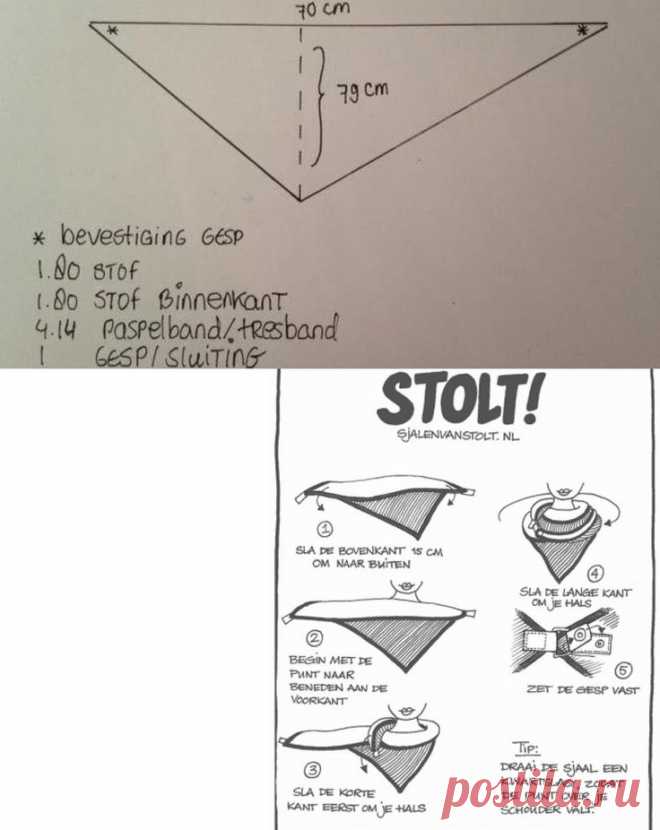 70 cm
*
*
79 cm
* bevestiging GESP
1.80 STOF
1.80 STOF Binnenkant
4.14 paspelband/.tresband
1 GESP/SLUITING
STOLT!
SJALENVANSTOLT.NL
1
SLA DE BOVENKANT 15 CM
OM NAAR BUITEN
2
BEGIN MET DE
PUNT NAAR
BENEDEN AAN DE
VOORKANT
3
SLA DE KORTE
KANT EERST OM JE HALS
4
SLA DE LANGE KANT
OM JE HALS
5
ZET DE GESP VAST
Tip:
DRAAI DE SJAAL EEN
KWARTSLAG ZODAT
DE PUNT OVER JE
SCHOUDER VALT.
postila.ru